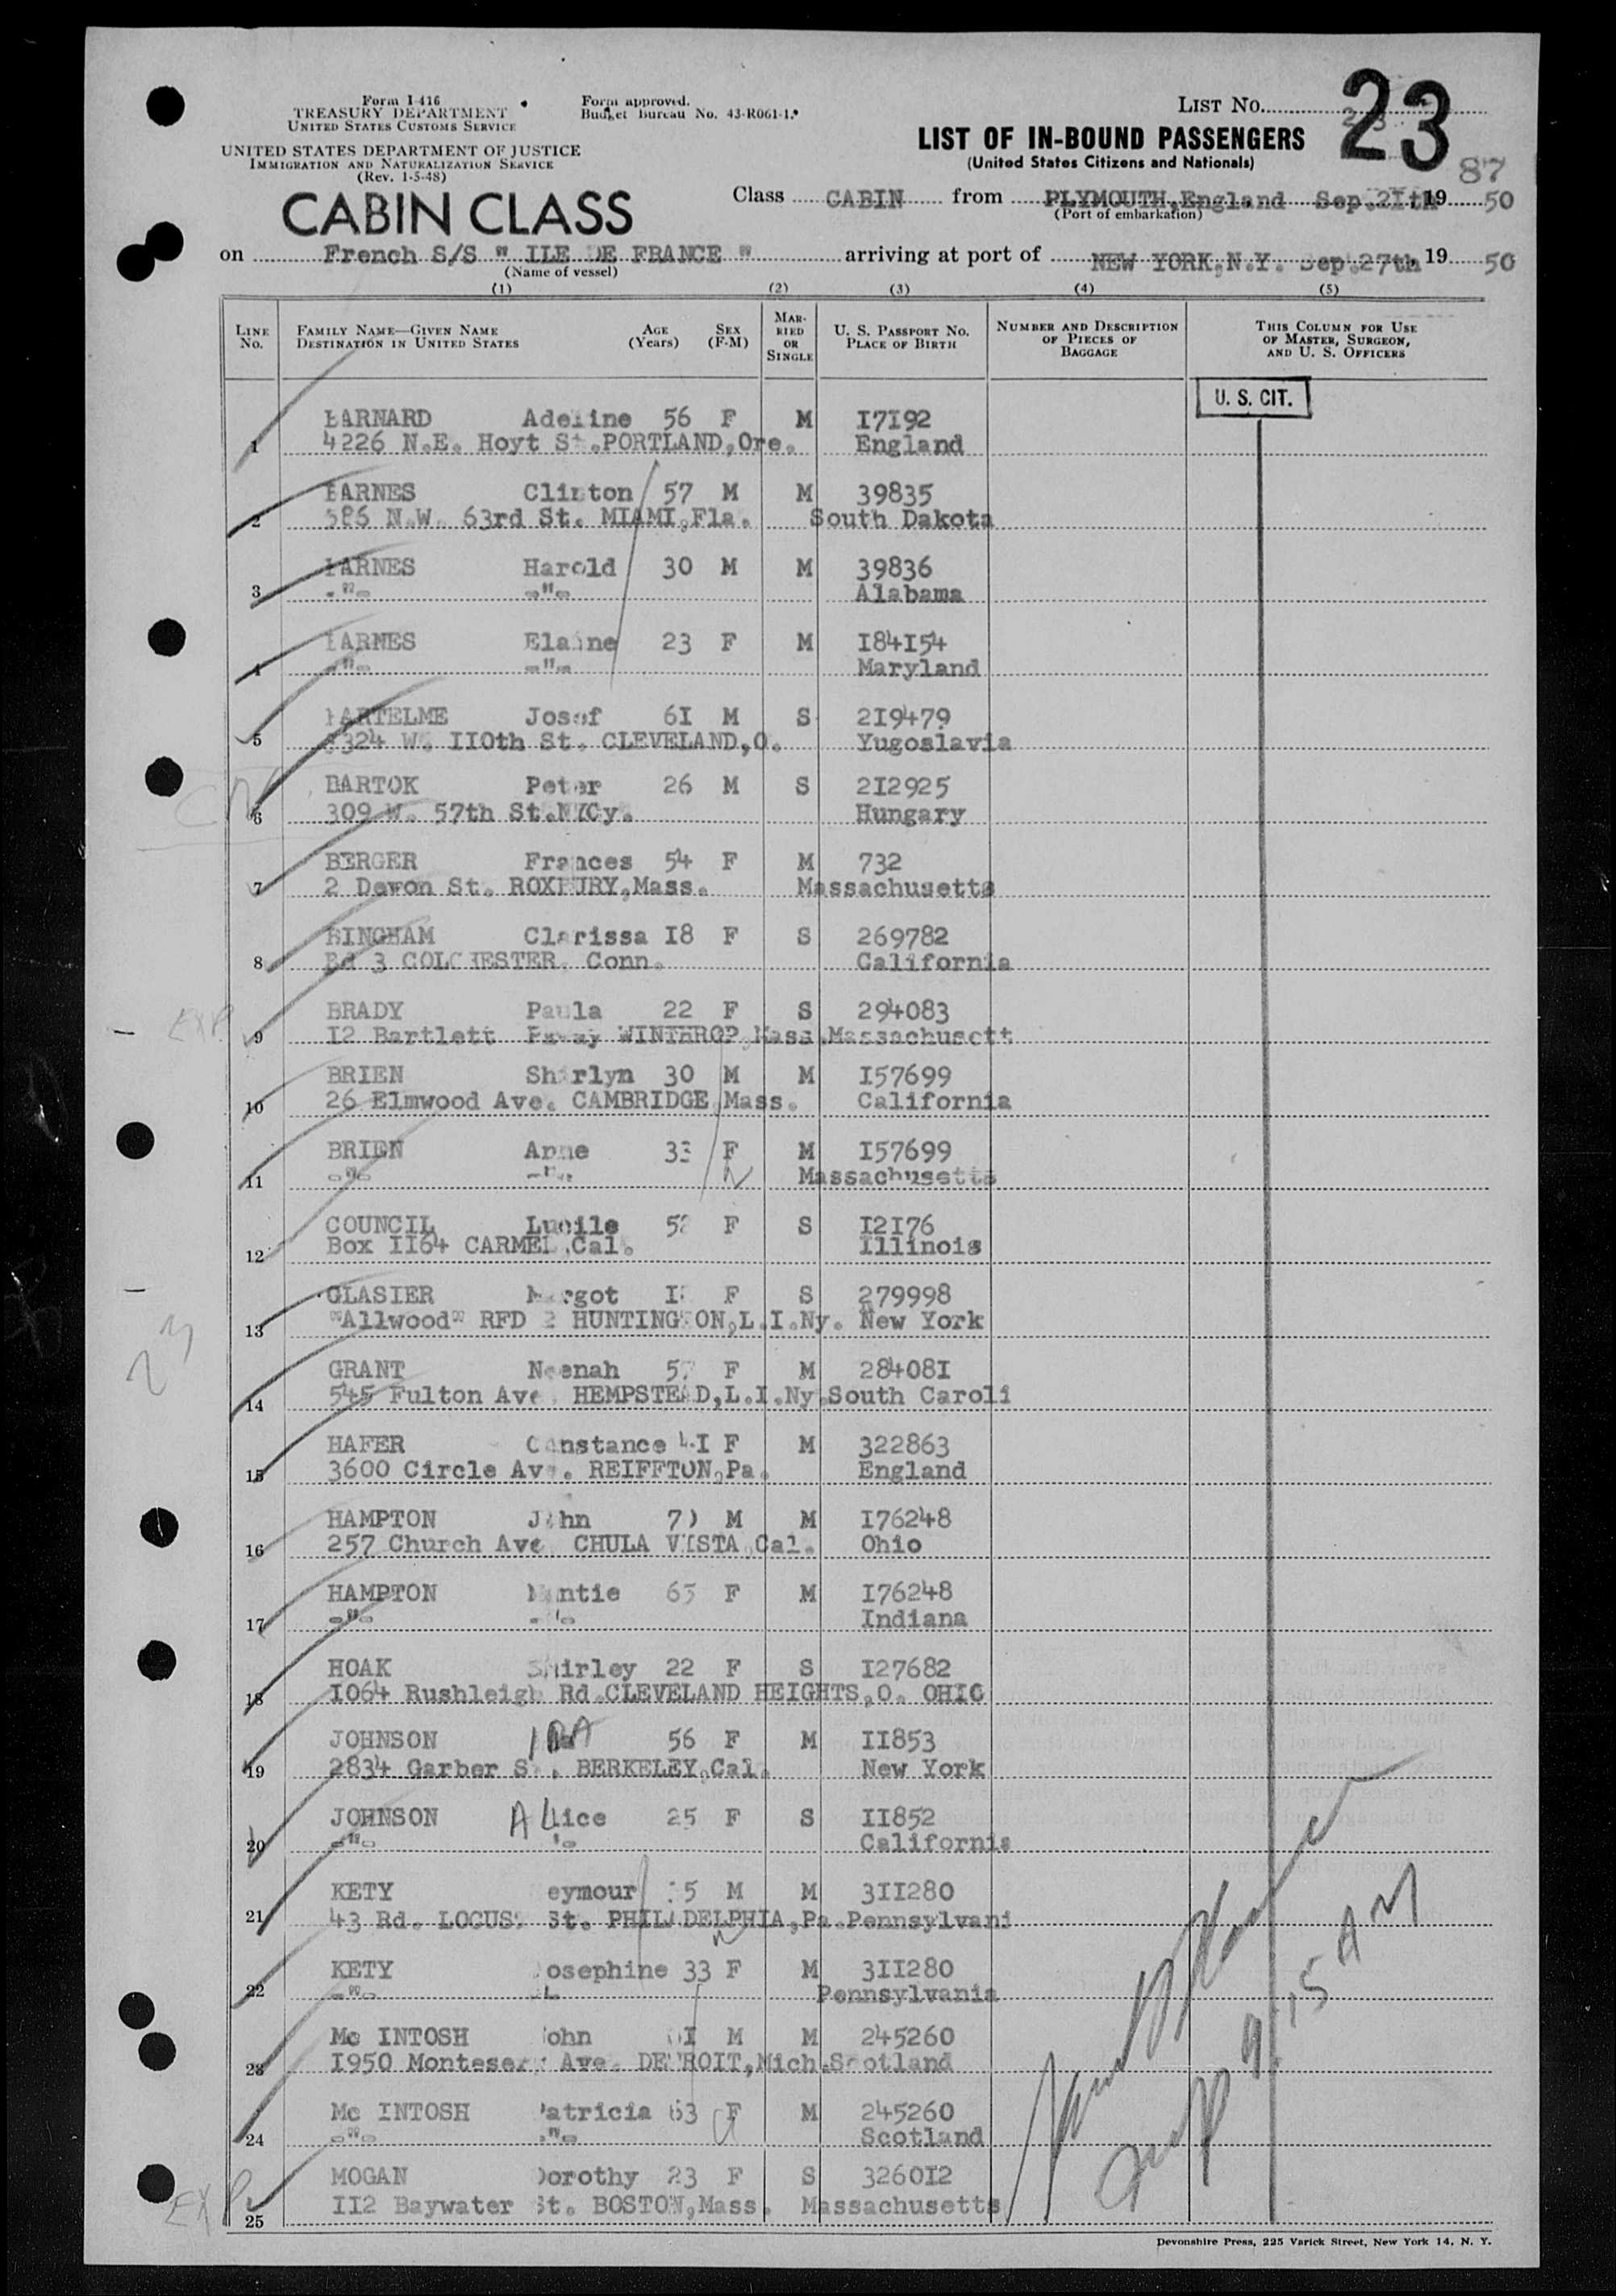 Form I-416
TREASURY DEPARTMENT
UNITED STATES CUSTOMS SERVICE
UNITED STATES DEPARTMENT OF JUSTICE
IMMIGRATION AND NATURALIZATION SERVICE
(Rev. 1-5-48)
Form approved.
Budget Bureau No. 43-R061-1.
LIST No. 23
LIST OF IN-BOUND PASSENGERS
(United States Citizens and Nationals)
87
CABIN CLASS
Class CABIN from PLYMOUTH,England Sep.2Ith 19 50
(Port of embarkation)
on French S/S " ILE DE FRANCE " arriving at port of NEW YORK,N.Y. Sep.27th 19 50
(Name of vessel)
(1) (2) (3) (4) (5)
LINE No. FAMILY NAME—GIVEN NAME DESTINATION IN UNITED STATES AGE (Years) SEX (F-M) MARRIED OR SINGLE U. S. PASSPORT No. PLACE OF BIRTH NUMBER AND DESCRIPTION OF PIECES OF BAGGAGE THIS COLUMN FOR USE OF MASTER, SURGEON, AND U. S. OFFICERS
U. S. CIT.
BARNARD Adeline 56 F M I7I92
1 4226 N.E. Hoyt St.PORTLAND,Ore. England
BARNES Clinton 57 M M 39835
2 N.W. 63rd St. MIAMI,Fla. South Dakota
BARNES Harold 30 M M 39836
3 -"- -"- Alabama
BARNES Elaine 23 F M I84I54
4 -"- -"- Maryland
BARTELME Josef 6I M S 2I9479
5 3324 W. II0th St. CLEVELAND,O. Yugoslavia
BARTOK Peter 26 M S 2I2925
6 309 W. 57th St.NYCy. Hungary
BERGER Frances 54 F M 732
7 2 Devon St. ROXBURY,Mass. Massachusetts
BINGHAM Clarissa I8 F S 269782
8 Rd 3 COLCHESTER, Conn. California
EXP
BRADY Paula 22 F S 294083
9 I2 Bartlett WINTHROP,Mass.Massachusett
BRIEN Shirlyn 30 M M I57699
10 26 Elmwood Ave. CAMBRIDGE,Mass. California
BRIEN Anne 33 F M I57699
11 -"- -"- Massachusetts
COUNCIL Lucile F S I2I76
12 Box II64 CARMEL,Cal. Illinois
GLASIER Margot F S 279998
13 "Allwood" RFD 2 HUNTINGTON,L.I.Ny. New York
23
GRANT Neenah F M 28408I
14 545 Fulton Ave. HEMPSTEAD,L.I.Ny.South Caroli
HAFER Constance 4I F M 322863
15 3600 Circle Ave. REIFFTON,Pa. England
HAMPTON John M M I76248
16 257 Church Ave. CHULA VISTA,Cal. Ohio
HAMPTON F M I76248
17 -"- Indiana
HOAK Shirley 22 F S I27682
18 I064 Rushleigh Rd.CLEVELAND HEIGHTS,O. OHIO
JOHNSON IDA 56 F M II853
19 2834 Garber St. BERKELEY,Cal. New York
JOHNSON ALice 25 F S II852
20 -"- California
KETY eymour M M 3II280
21 43 Rd. LOCUST St. PHILADELPHIA,Pa.Pennsylvani
KETY osephine 33 F M 3II280
22 -"- Pennsylvania
Mc INTOSH ohn M M 245260
23 I950 Ave. DETROIT,Mich.Scotland
Mc INTOSH atricia 63 F M 245260
24 -"- -"- Scotland
MOGAN Dorothy 23 F S 3260I2
25 II2 Baywater St. BOSTON,Mass. Massachusetts
EXP
9:15 AM
Devonshire Press, 225 Varick Street, New York 14, N. Y.